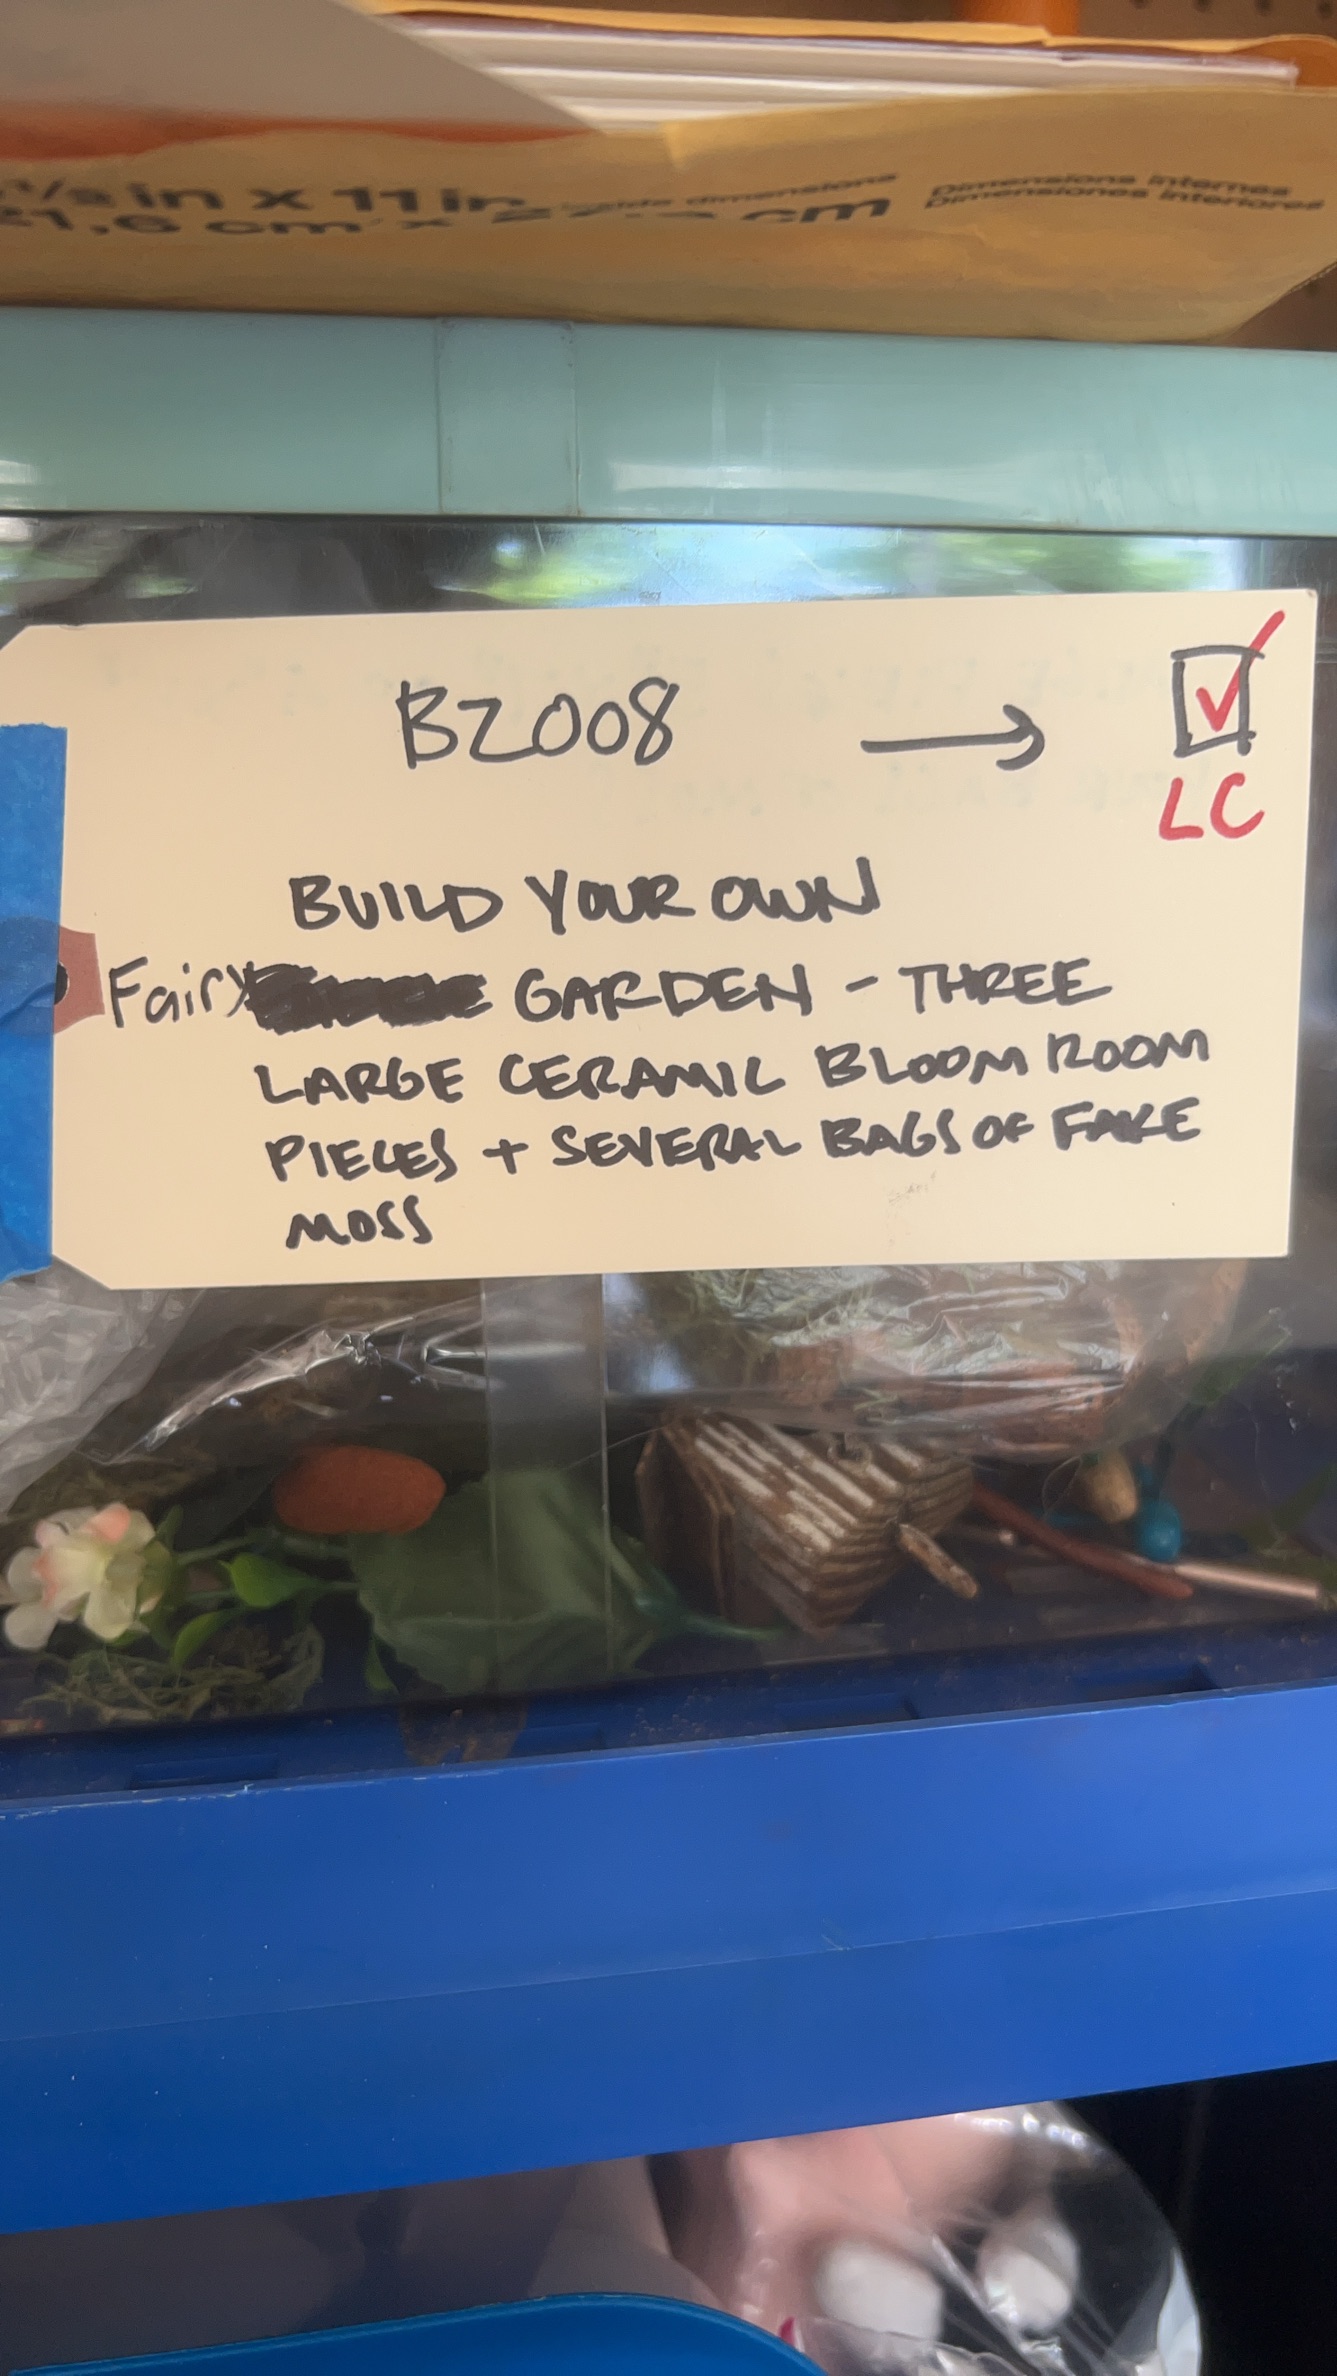 in x 11 in
Dimensions internes
Dimensiones interiores
cm
BZ008 → ☑
LC
BUILD YOUR OWN
Fairy GARDEN - THREE
LARGE CERAMIC BLOOM ROOM
PIECES + SEVERAL BAGS OF FAKE
MOSS